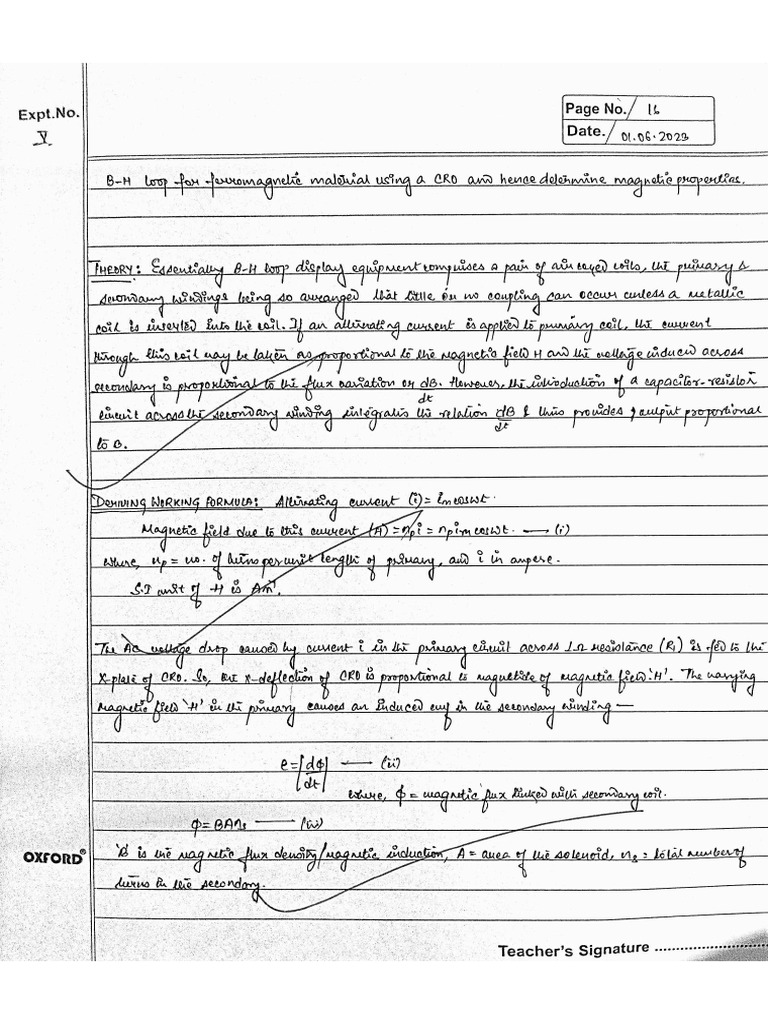 Expt.No.
V
Page No. 16
Date. 01.06.2023
B-H loop for ferromagnetic material using a CRO and hence determine magnetic properties.
THEORY: Essentially B-H loop display equipment comprises a pair of air cored coils, the primary &
secondary windings being so arranged that little or no coupling can occur unless a metallic
coil is inserted into the coil. If an alternating current is applied to primary coil, the current
through this coil may be taken as proportional to the magnetic field H and the voltage induced across
secondary is proportional to the flux variation or dB/dt. However, the introduction of a capacitor-resistor
circuit across the secondary winding integrates the relation dB/dt & thus provides output proportional
to B.
DERIVING WORKING FORMULA: Alternating current (i) = im coswt.
Magnetic field due to this current (H) = npi = npim coswt. —(i)
where, np = no. of turns per unit length of primary, and i in ampere.
S.I unit of H is Am⁻¹.
The AC voltage drop caused by current i in the primary circuit across 1Ω resistance (R1) is fed to the
X-plate of CRO. So, the x-deflection of CRO is proportional to magnitude of magnetic field 'H'. The varying
magnetic field 'H' in the primary causes an induced emf in the secondary winding —
e = |dϕ/dt| —(ii)
where, ϕ = magnetic flux linked with secondary coil.
ϕ = BAns —(iii)
B is the magnetic flux density/magnetic induction, A = area of the solenoid, ns = total number of
turns in the secondary.
OXFORD®
Teacher's Signature